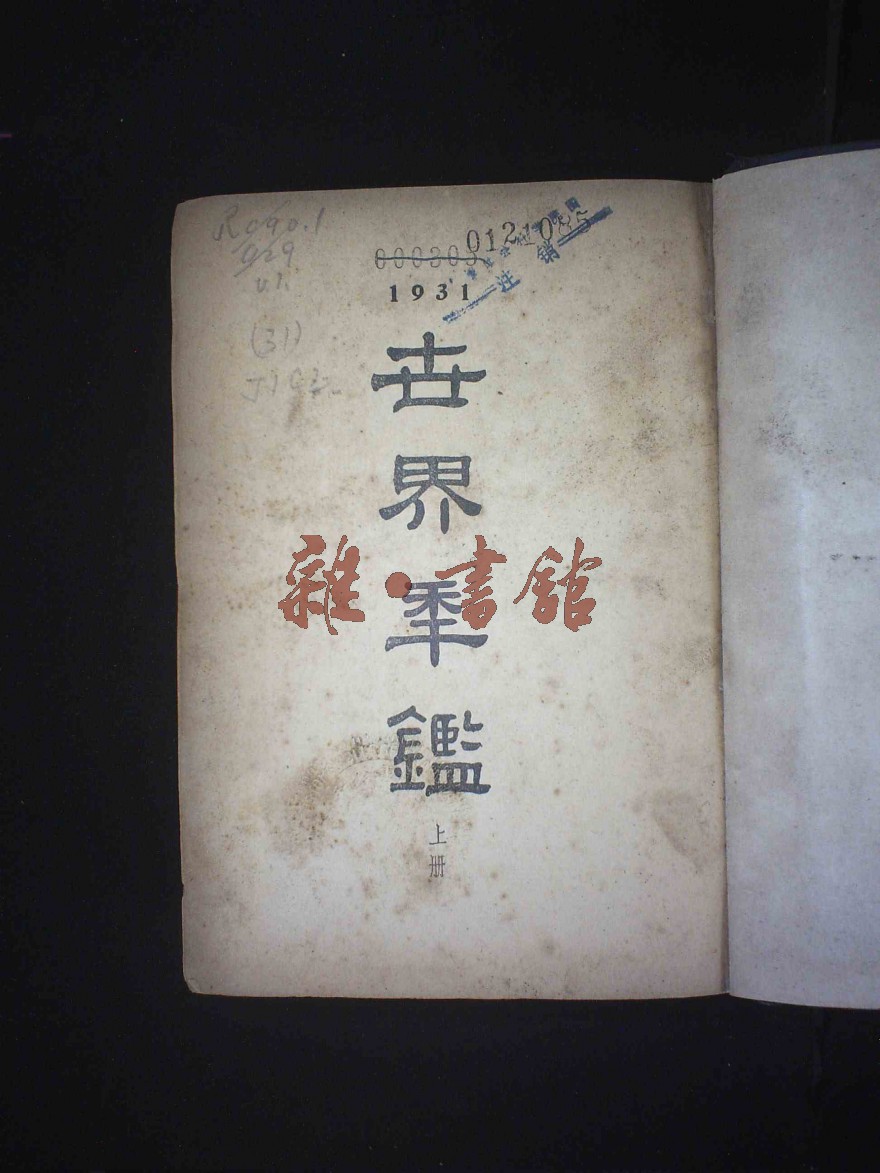 R090.1
929
v.1
(31)
000303
0121085
注销
1931
世
界
年
鑑
上
册
雜·書館